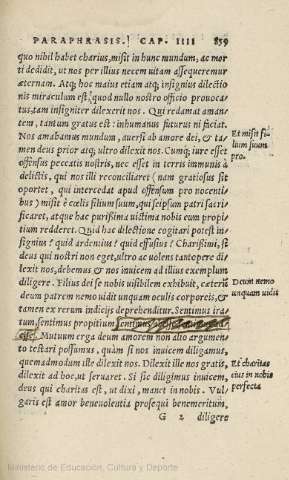 PARAPHRASIS. CAP. IIII 859
quo nihil habet charius, misit in hunc mundum, ac mor
ti dedidit, ut nos per illius necem uitam assequeremur
æternam. Atq; hoc maius etiam atq; insignius dilectio
nis miraculum est, quod nullo nostro officio prouoca/
tus, tam insigniter dilexerit nos. Qui redamat aman/
tem, tantum gratus est: inhumanus futurus ni faciat.
Nos amabamus mundum, auersi ab amore dei, & ta/
men deus prior atq; ultro dilexit nos. Cumq; iure esset
offensus peccatis nostris, nec esset in terris immunis à
delictis, qui nos illi reconciliaret (nam gratiosus sit
oportet, qui intercedat apud offensum pro nocenti/
bus) misit è cœlis filium suum, qui seipsum patri sacri
ficaret, atque hac purissima uictima nobis eum propi/
tium redderet. Quid hac dilectione cogitari potest in/
signius? quid ardentius? quid effusius? Charissimi, si
deus qui nostri non eget, ultro ac uolens tantopere di/
lexit nos, debemus & nos inuicem ad illius exemplum
diligere. Filius dei se nobis uisibilem exhibuit, cæterù
deum patrem nemo uidit unquam oculis corporeis, &
tamen ex rerum indicijs deprehenditur. Sentimus ira/
tum, sentimus propitium, sentimus
Mutuum erga deum amorem non alio argumen
to testari possumus, quàm si nos inuicem diligamus,
quemadmodum ille dilexit nos. Dilexit ille nos gratis,
dilexit ad hoc, ut seruaret. Si sic diligimus inuicem,
deus qui charitas est, ut dixi, manet in nobis. Vul/
garis est amor beneuolentia prosequi benemeritum,
G 2 diligere
Et misit fi/
lium suum
pro.
Deum nemo
unquam uidit
Et charitas
eius in nobis
perfecta
Ministerio de Educación, Cultura y Deporte